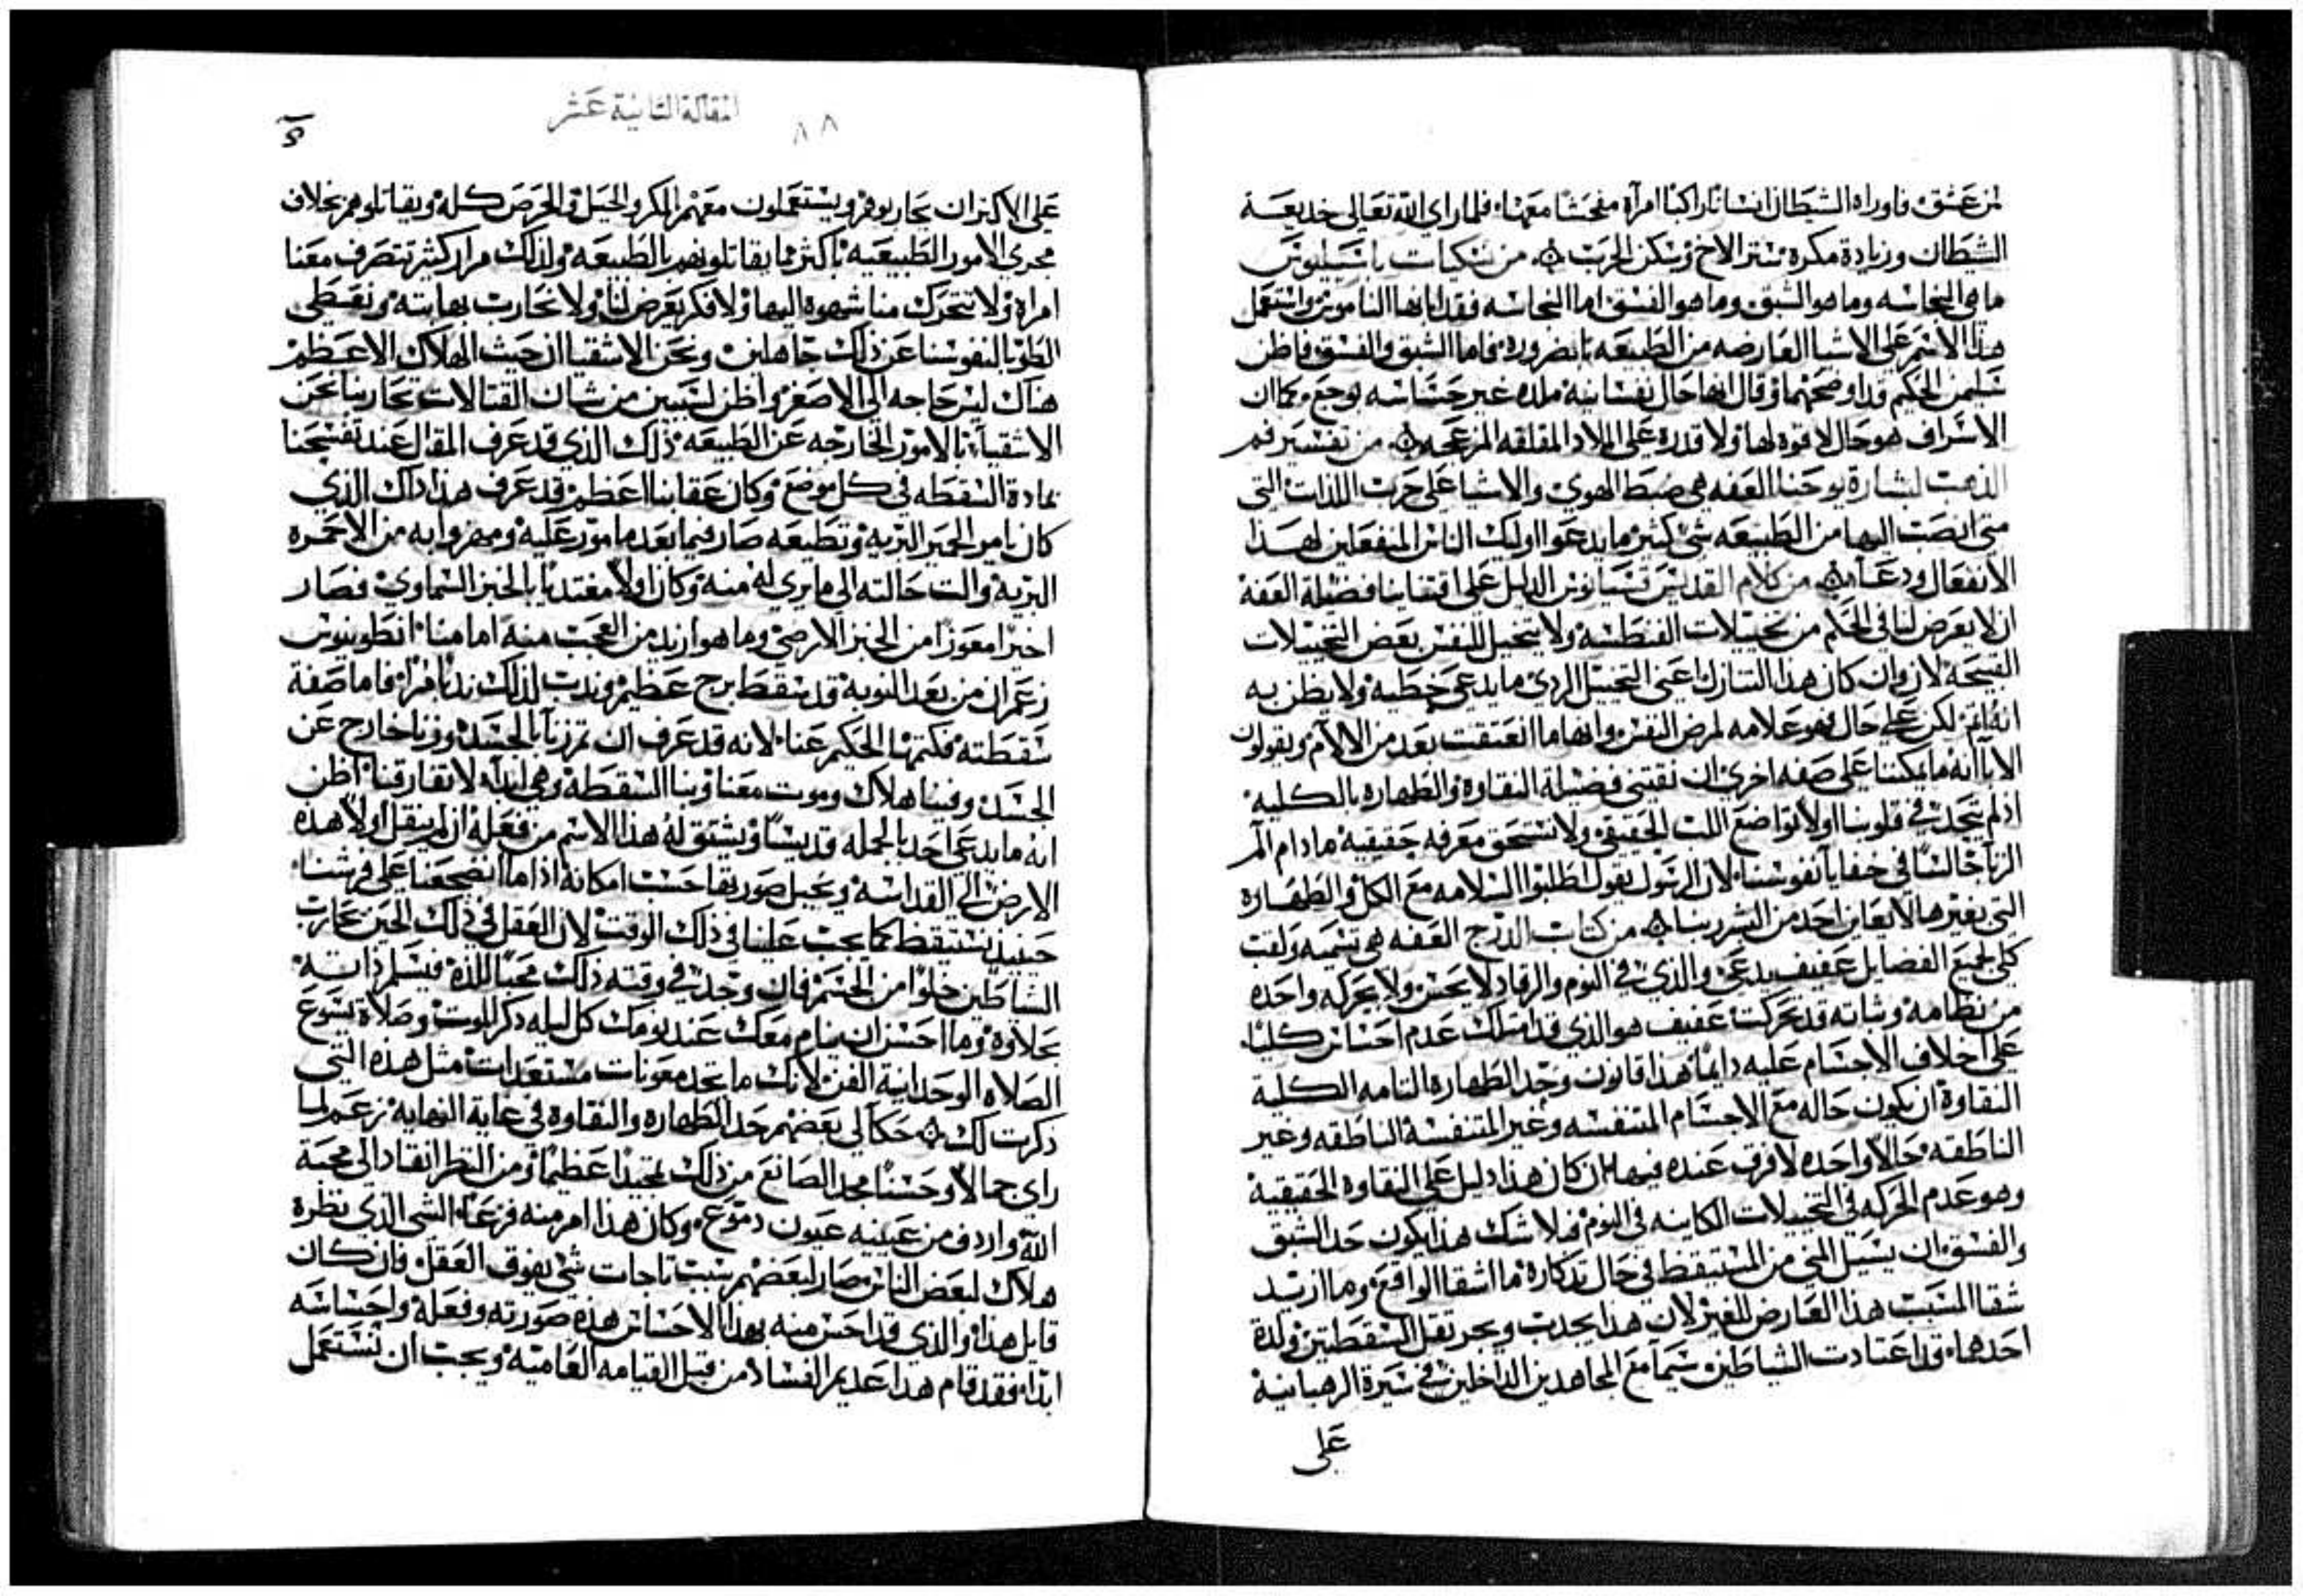 لمن عشق فاوراه الشيطان انسانا راكبا امرآه مفحشا معها، فلما راى الله تعالى خديعة
الشيطان وزيادة مكره ستر الاخ وسكن الحرب من سكيات باسيليوس
ما هي النجاسه وما هو الشبق وما هو الفسق اما النجاسه فقد ابانها الناموس واستعمل
هذا الاسم على الاشيا العارضه من الطبيعه بالضروره فاما الشبق والفسق فاظن
سليمن الحكيم قد اوضحهما وقال انها حال نفسانيه ملذه غير حساسه لوجع، كما ان
الاشراف هو حال لا قوه لها ولا قدره على الملاذ المقلقه المزعجه من تفسير فم
الذهب لبشارة يوحنا العفه هي ضبط الهوى والاشيا على حرب اللذات التي
متى انصب اليها من الطبيعه شي كثير ما يدعوا اوليك الناس المنفعلين لهذا
الانفعال ودعا من كلام القديس قسيانوس الدليل على اقتناينا فضيلة العفة
ان لا يعرض لنا في الحلم من تخييلات الفنطسه ولا يتخيل للنفس بعض التخييلات
القبيحه لان وان كان هذا التنازل اعني التخييل الردى ما يدعى خطيه ولا يظن به
انه اثم لكن على حال فهو علامه لمرض النفس وانها ما انعتقت بعد من الالام ويقولون
الابا انه ما يمكننا على صفه اخرى ان نقتني فضيلة النقاوه والطهاره بالكليه
اذ لم يتحدث في قلوبنا اولا تواضع اللب الحقيقى ولا نستحق معرفه حقيقيه ما دام الم
الزنا جالسا في خفايا نفوسنا، لان الرسول يقول اطلبوا السلامه مع الكل والطهاره
التي بغيرها لا يعاين احد من البشر ربنا من كتاب الدرج العفه هي تسميه ولقب
كلي لجميع الفضايل عفيف يدعى والذي في النوم والرقاد لا يحس ولا بحركه واحده
من نظامه وشانه قد تحركت عفيف هو الذي قد امتلك عدم احساس كليا
على اخلاف الاجسام عليه دايما، هذا قانون وحد الطهاره التامه الكلية
النقاوة ان يكون حاله مع الاجسام المتنفسه وغير المتنفسه الناطقه وغير
الناطقه حالا واحده لا فرق عنده فيها، ان كان هذا دليل على النقاوه الحقيقية
وهو عدم الحركه في التخييلات الكاينه في النوم فلا شك هذا يكون حد الشبق
والفسق ان يسيل المني من المستيقظ في حال تذكاره ما اشقا الواقع وما ازيد
شقا المسبب هذا العارض للغير لان هذا يجذب ويجر ثقل السقطتين ولذة
احدهما، قد اعتادت الشياطين سيما مع المجاهدين الداخلين في سيرة الرهبانية
على
المقالة الثانية عشر
٨٨
على الاكثر ان يحاربوهم ويستعملون معهم المكر والحيل والحرص كله ويقاتلوهم بخلاف
مجرى الامور الطبيعيه باكثر مما يقاتلونهم بالطبيعه ولذلك مرار كثيرة تتصرف معنا
امراه ولا تتحرك منا شهوه اليها ولا فكر يعرض لنا ولا نحارب بها بته ونعطي
الطوبا لنفوسنا عن ذلك جاهلين ونحن الاشقيا ان حيث الهلاك الاعظم
هناك ليس حاجه الى الاصغر واظن لسببين من شان القتالات تحاربنا نحن
الاشقيا، بالامور الخارجه عن الطبيعه ذلك الذي قد عرف المقال عند تفسحنا
بمادة السقطه في كل موضع وكان عقابنا اعظم قد عرف هذا ذاك الذي
كان يامر الحمير البريه وتطيعه صار فيما بعد مامور عليه ومهزوا به من الاحمره
البريه والت حالته الى ما يرى له منه وكان اولا مغتديا بالخبز السماوي فصار
اخيرا معوزا من الخبز الارضي وما هو ازيد من العجب منه امامنا، انطونيوس
زعم ان من بعد التوبه قد سقط برج عظيم وندب لذلك ندبا مرا، فاما صفة
سقطته فكتمها الحكيم عنا، لانه قد عرف ان تم زنا بالجسد وزنا خارج عن
الجسد، وفينا هلاك وموت معنا وبنا السقطة وهي ابدا لا تفارقنا اظن
انه ما يدعى احد بالجمله قديسا ويشتق له هذا الاسم من فعله ان لم ينقل اولا هذه
الارض الى القداسه ويحيل صورتها حسب امكانه اذا ما انضجعنا على فرشنا
حينيذ نستيقظ كما يجب علينا في ذلك الوقت لان العقل في ذلك الحين يحارب
الشياطين خلوا من الجسم فان وجد في وقته ذلك محبا للذه فيسلم ذاته
بحلاوه وما احسن ان ينام معك عند نومك كل ليله ذكر الموت وصلاة يسوع
الصلاه الوحدانية الفن لانك ما تجد معونات مستعدات مثل هذه التي
ذكرت لك حكا لي بعضهم حد الطهاره والنقاوه في غاية النهايه زعم لما
راى جمالا وحسنا مجد الصانع من ذلك تمجيدا عظيما ومن النظر انقاد الى محبة
الله واردف من عينيه عيون دموع وكان هذا امر منه فزعا، الشي الذي نظره
هلاك لبعض الناس صار لبعضهم سبب تاجات شي يفوق العقل فان كان
قايل هذا والذي قد احس منه بهذا الاحساس هذه صورته وفعله واحساسه
ابدا، فقد قام هذا عديم الفساد من قبل القيامه العاميه ويجب ان نستعمل